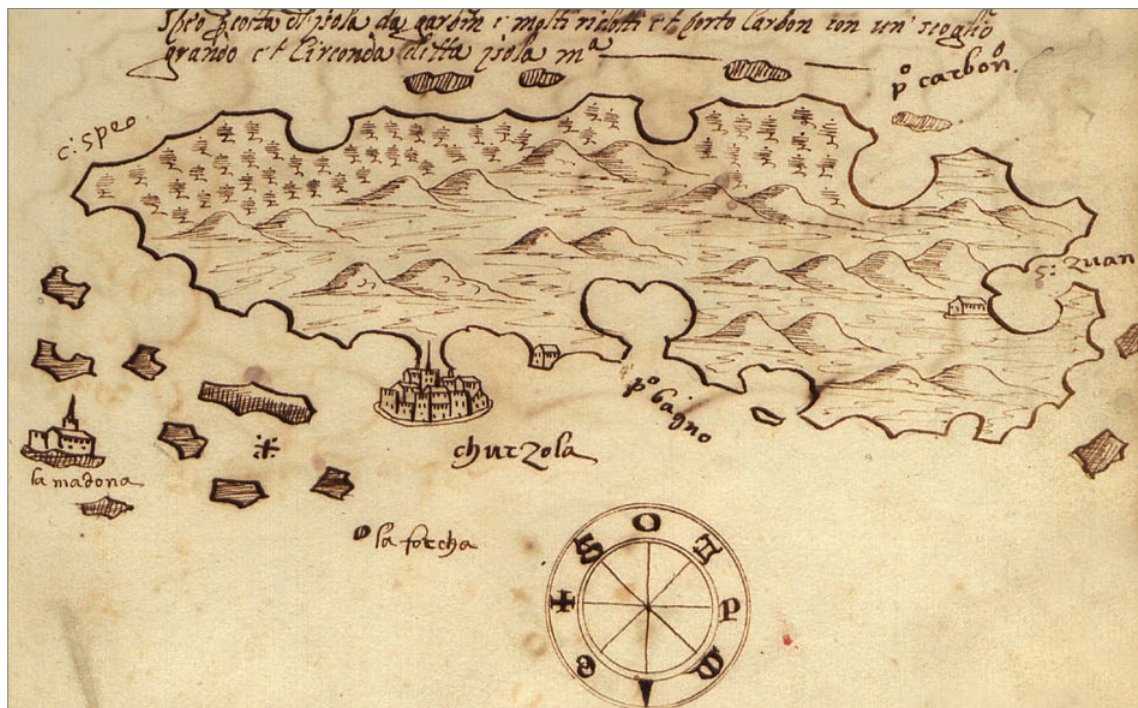 Speo p costa dl isola da gardin e molti ridotti et porto Carbon con un' scoglio
grando et Circonda ditta isola mª
pº carbon
c: speo
s: zuan
pº bagno
churzola
la madona
la forcha
O
P